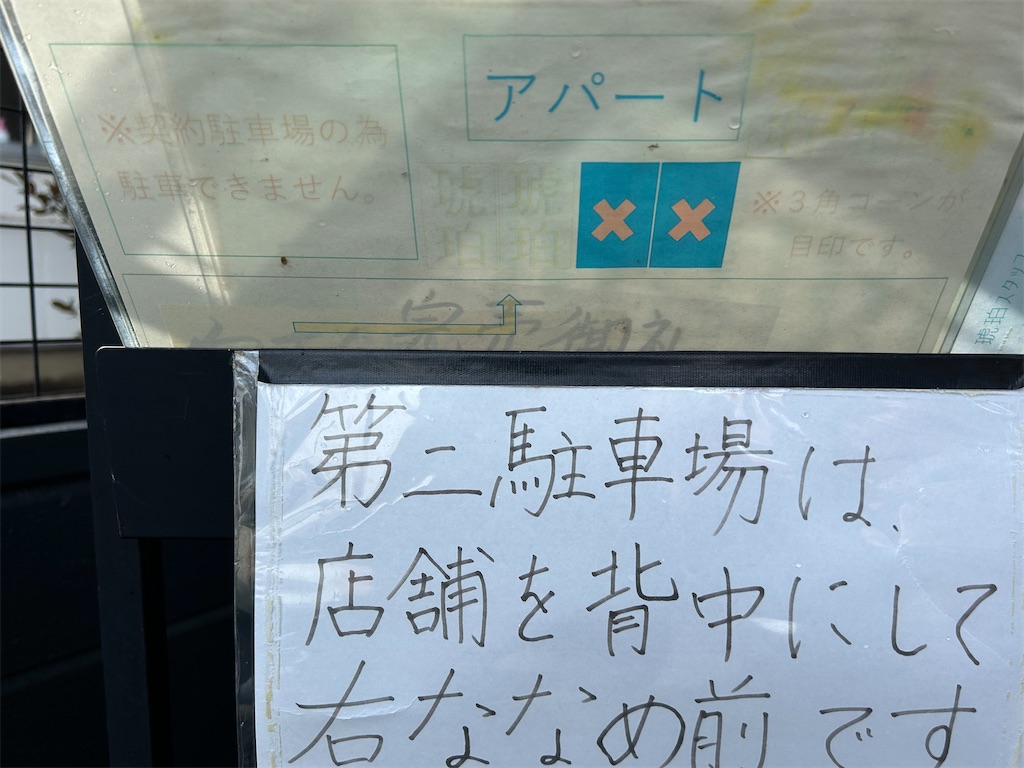 アパート
※契約駐車場の為
駐車できません。
琥珀
琥珀
※3角コーンが
目印です。
完売御礼
琥珀スタッフ
第二駐車場は、
店舗を背中にして
右ななめ前です